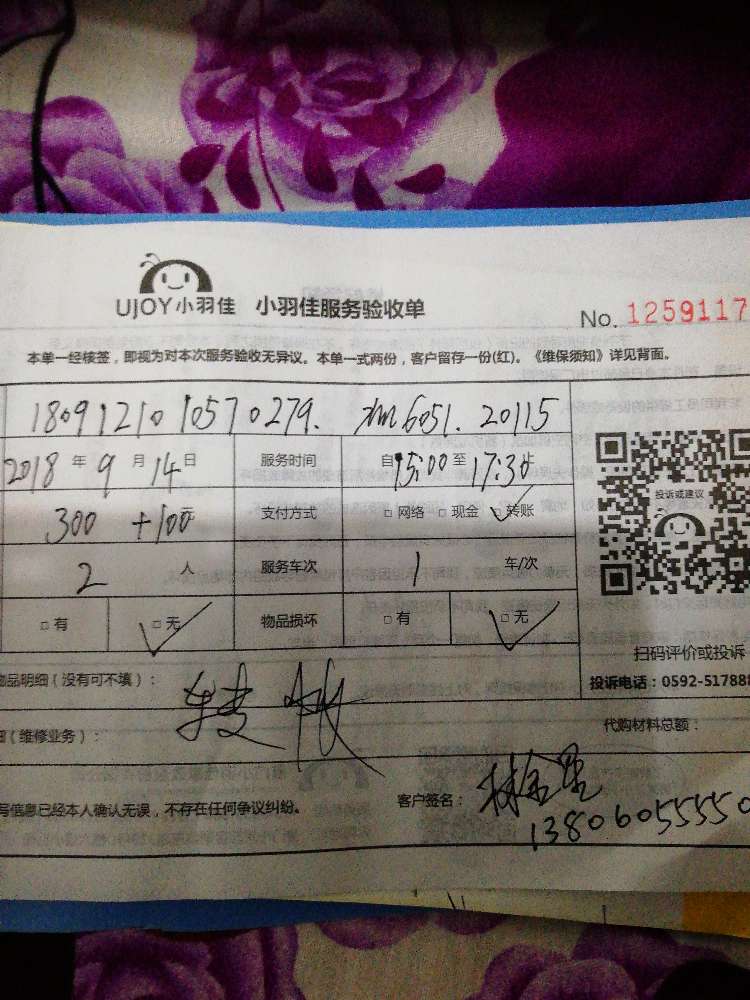 UJOY小羽佳 小羽佳服务验收单
No. 1259117
本单一经核签，即视为对本次服务验收无异议。本单一式两份，客户留存一份(红)。《维保须知》详见背面。
1809121010570279. xm6051.20115
2018 年 9 月 14 日 服务时间 自 15:00 至 17:30 止
300 +100 元 支付方式 □ 网络 □ 现金 □ 转账
投诉或建议
2 人 服务车次 1 车/次
□ 有 □ 无 物品损坏 □ 有 □ 无
扫码评价或投诉
物品明细（没有可不填）：
投诉电话：0592-517888
（维修业务）：
代购材料总额：
号信息已经本人确认无误，不存在任何争议纠纷。
客户签名：
13806055550